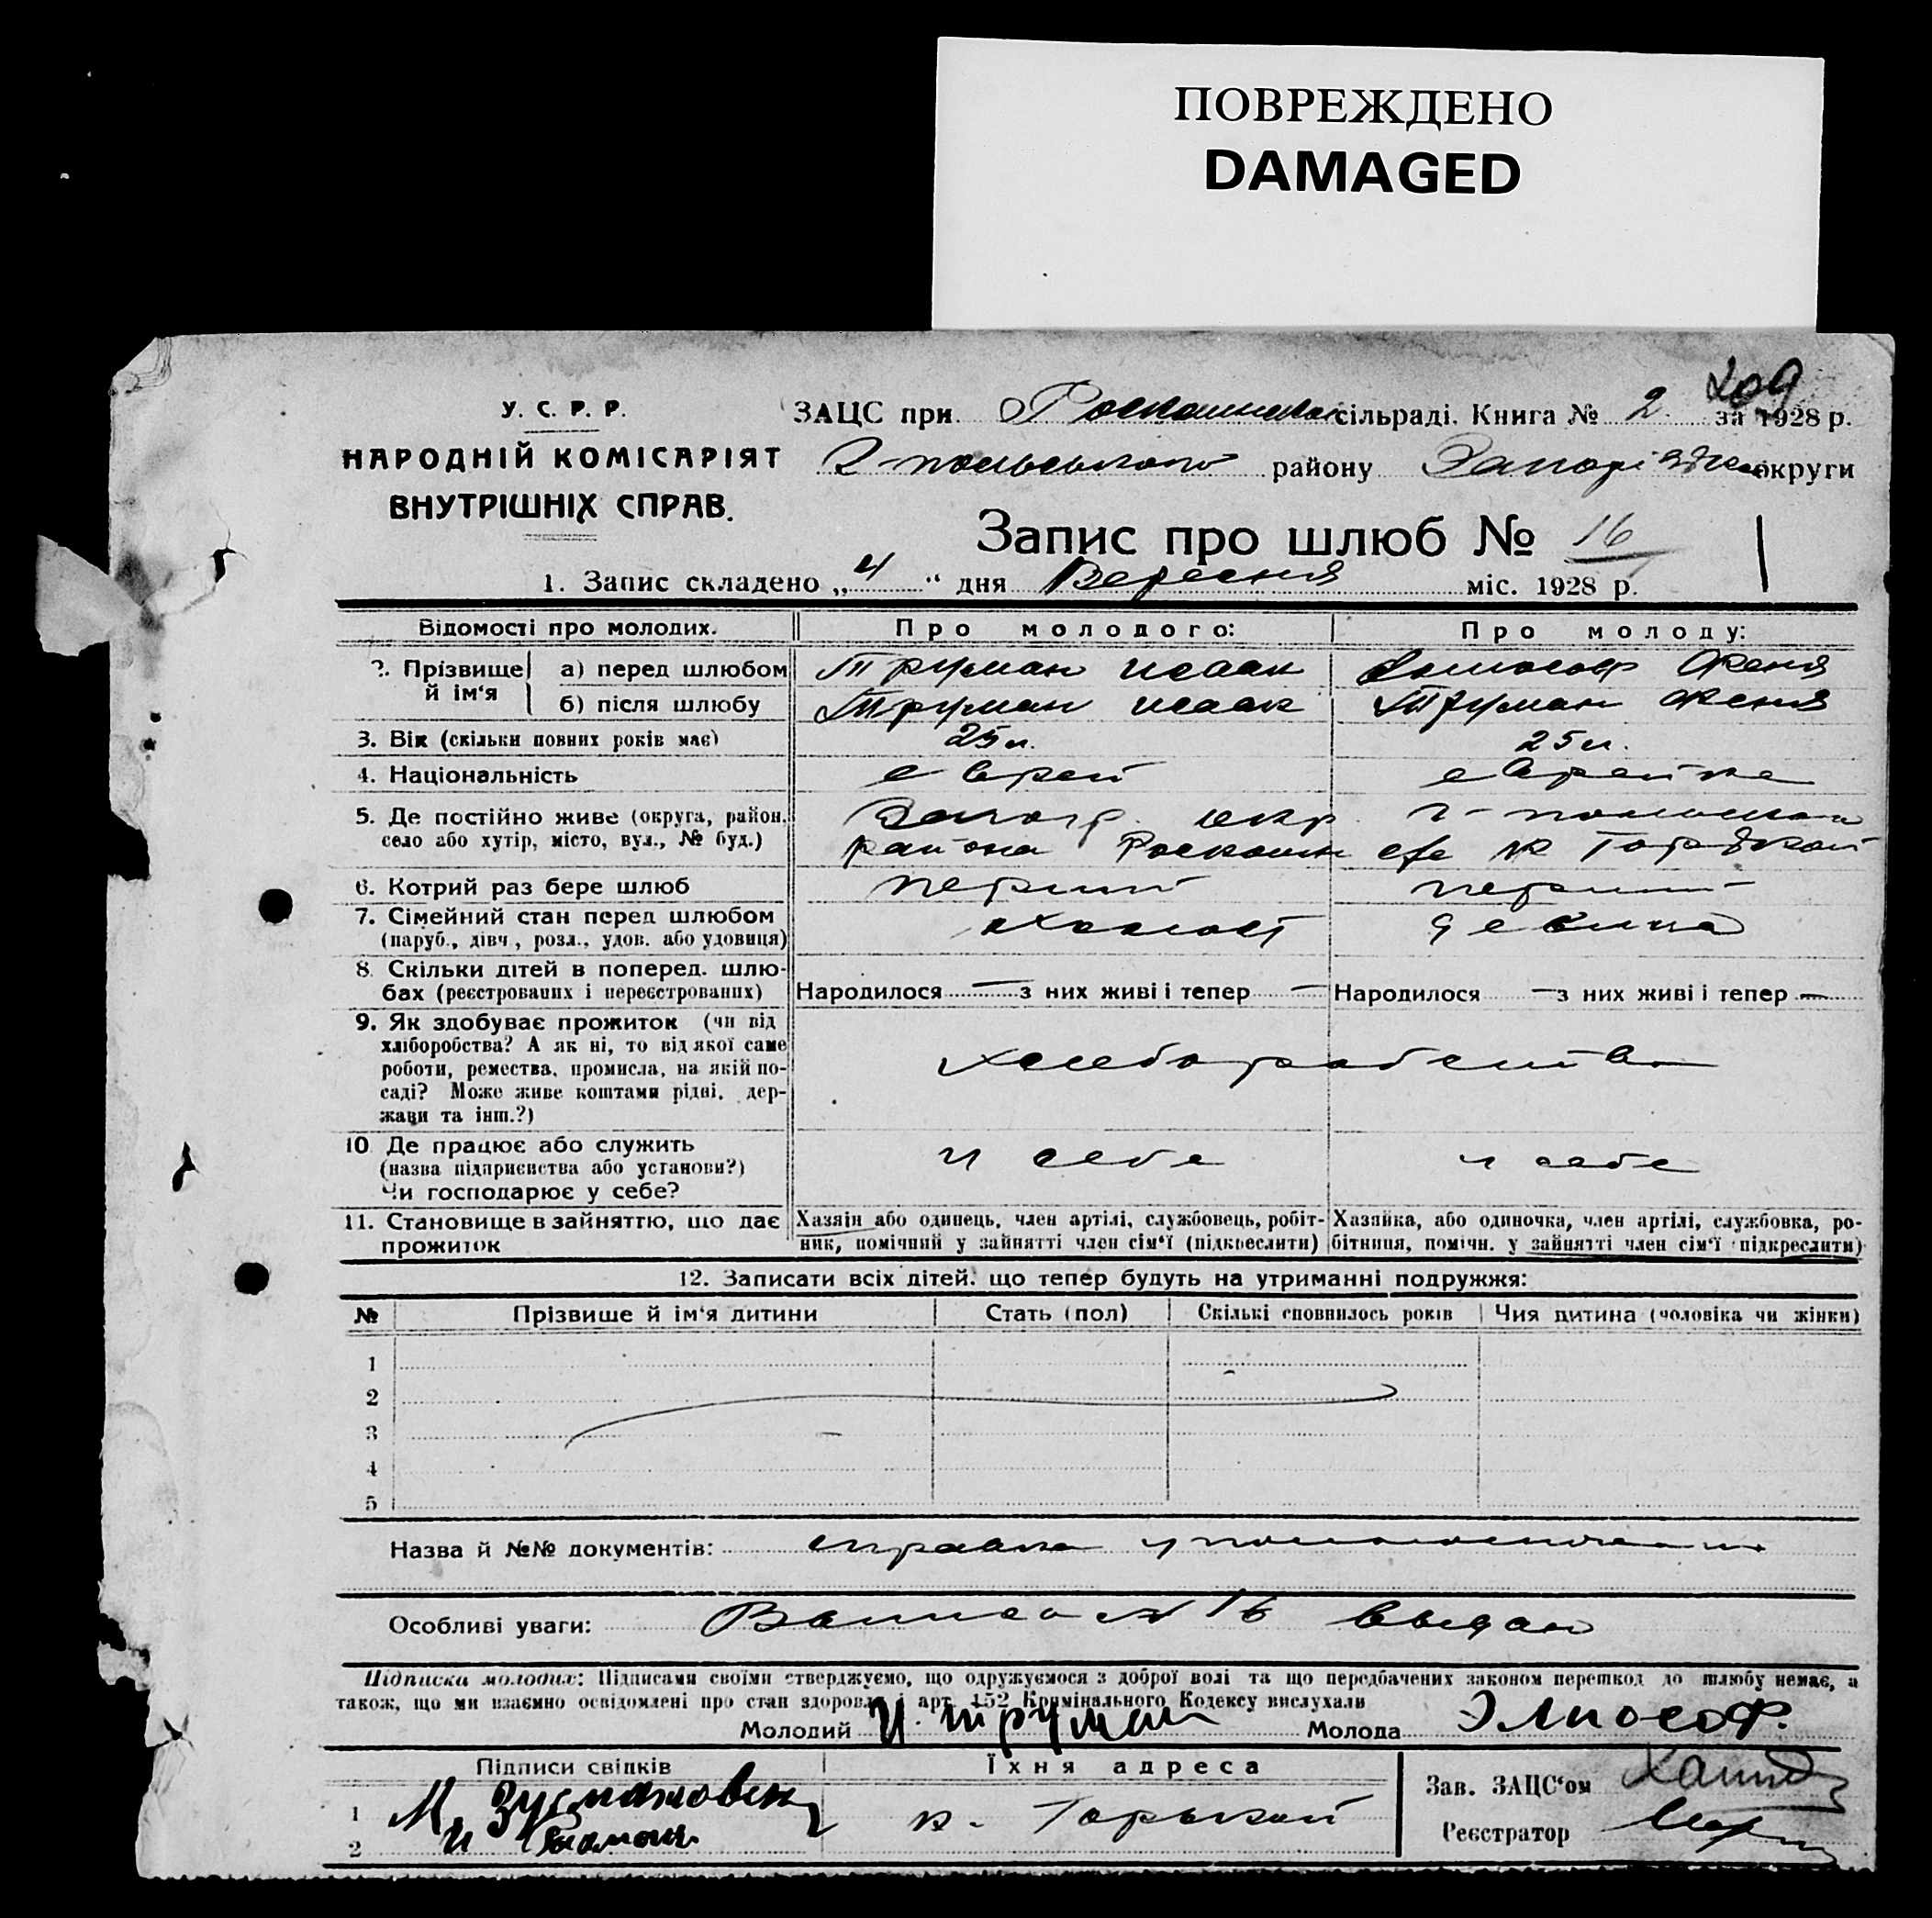 ПОВРЕЖДЕНО
DAMAGED
209
У. С. Р. Р.
НАРОДНІЙ КОМІСАРІЯТ
ВНУТРІШНІХ СПРАВ.
ЗАЦС при сільраді. Книга № 2 за 1928 р.
району округи
Запис про шлюб № 16
1. Запис складено „4“ дня Вересня міс. 1928 р.
Відомості про молодих. Про молодого: Про молоду:
2. Прізвище й ім'я а) перед шлюбом Труман Исаак Женя
б) після шлюбу Труман Исаак Труман Женя
3. Вік (скільки повних років має) 25 л. 25 л.
4. Національність еврей еврейка
5. Де постійно живе (округа, район,
село або хутір, місто, вул., № буд.) района
6. Котрий раз бере шлюб перший перший
7. Сімейний стан перед шлюбом
(паруб., дівч., розл., удов. або удовиця) холост девица
8. Скільки дітей в поперед. шлю-
бах (реєстрованих і нереєстрованих) Народилося — з них живі і тепер — Народилося — з них живі і тепер —
9. Як здобуває прожиток (чи від
хліборобства? А як ні, то від якої саме
роботи, ремества, промисла, на якій по-
саді? Може живе коштами рідні, дер-
жави та інш.?)
10 Де працює або служить
(назва підприємства або установи?) у себе у себе
Чи господарює у себе?
11. Становище в зайняттю, що дає Хазяін або одинець, член артілі, службовець, робіт- Хазяйка, або одиночка, член артілі, службовка, ро-
прожиток ник, помічний у зайнятті член сім'ї (підкреслити) бітниця, помічн. у зайнятті член сім'ї (підкреслити)
12. Записати всіх дітей, що тепер будуть на утриманні подружжя:
№ Прізвище й ім'я дитини Стать (пол) Скількі сповнилось років Чия дитина (чоловіка чи жінки)
1
2
3
4
5
Назва й №№ документів: справка
Особливі уваги: № 16 выдан
Підписка молодих: Підписами своїми стверджуємо, що одружуємося з доброї волі та що передбачених законом перешкод до шлюбу немає, а
також, що ми взаємно освідомлені про стан здоровля і арт. 152 Кримінального Кодексу вислухали
Молодий И. Труман Молода
Підписи свідків Їхня адреса
Зав. ЗАЦС'ом
1 М. к. Горький
Реєстратор
2 И